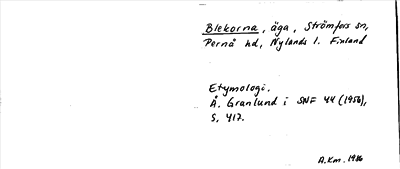 Blekorna, äga, Strömfors sn,
Pernå hd, Nylands l. Finland
Etymologi.
Å. Granlund i SNF 44 (1956),
S. 417.
A.Km. 1986